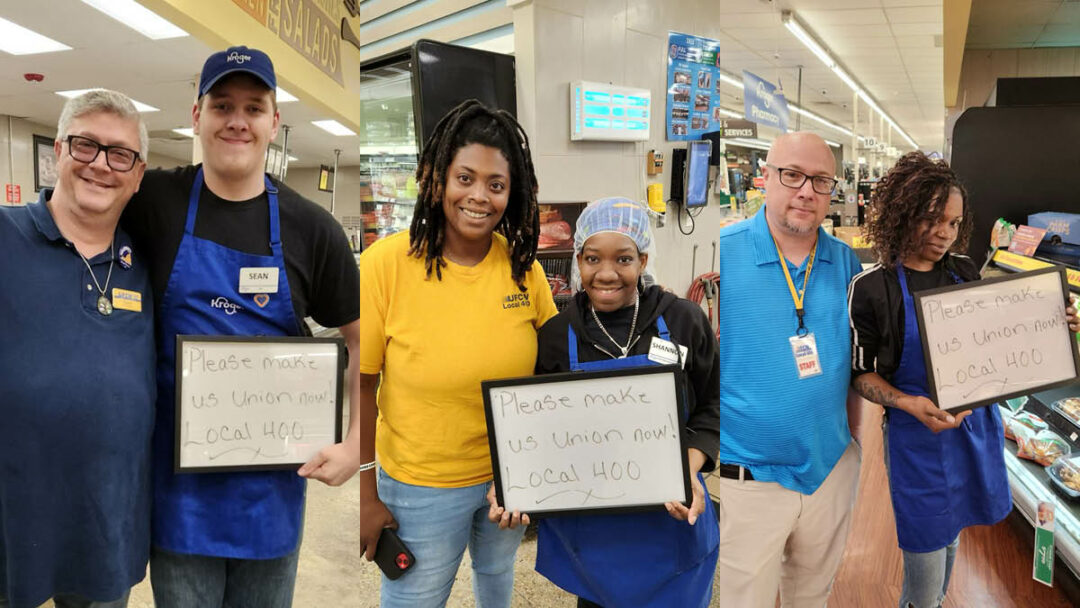 SALADS
Kroger
SEAN
Kroger
Please make
us Union now!
Local 400
UFCW
Local 400
SHANNON
Please make
us Union now!
Local 400
Kroger
Pharmacy
& SERVICES
STAFF
Please make
us Union now!
Local 400